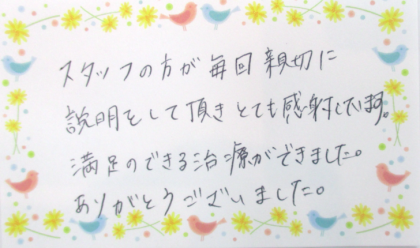 スタッフの方が毎回親切に
説明をして頂きとても感謝しています。
満足のできる治療ができました。
ありがとうございました。